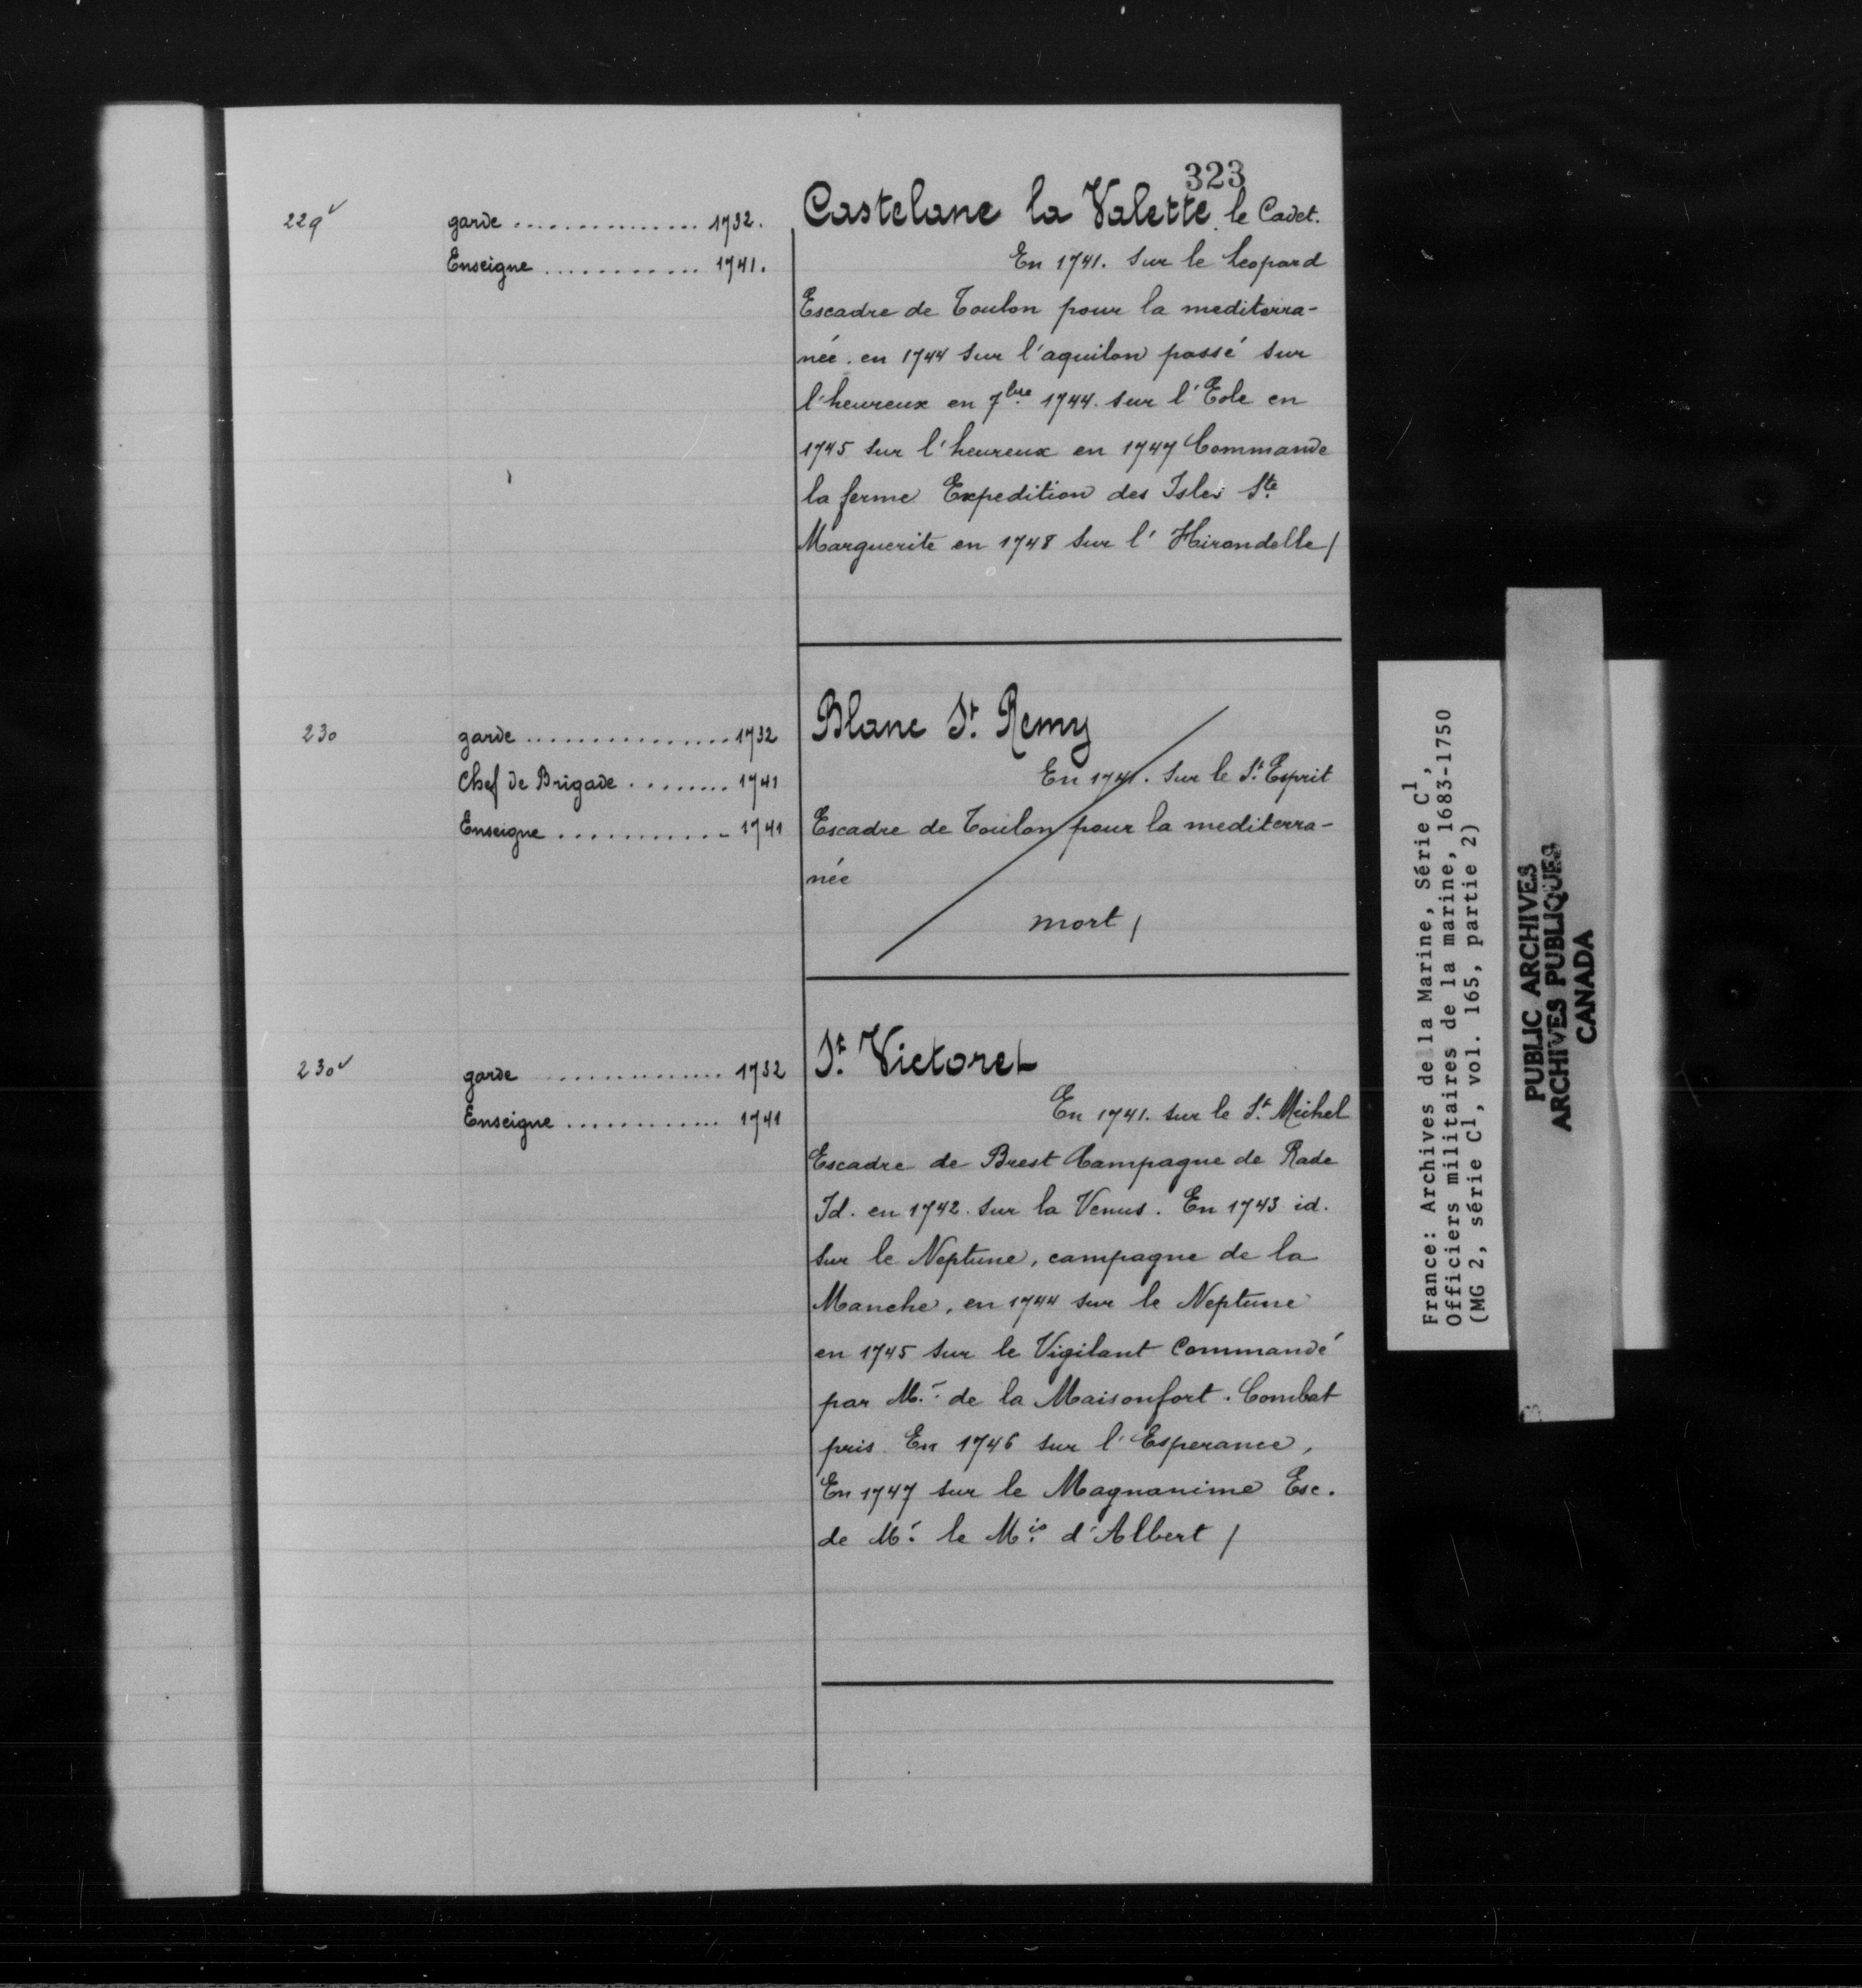 323
229v garde ............... 1732. Castelane la Valette. le Cadet.
Enseigne ............ 1741. En 1741. sur le Leopard
Escadre de Toulon pour la mediterra-
née. en 1744 sur l'aquilon passé sur
l'heureux en 7bre 1744. sur l'Eole en
1745 sur l'heureux en 1747 Commande
la ferme Expedition des Isles Ste
Marguerite en 1748 sur l'Hirondelle /
230 garde ................ 1732 Blanc St. Remy
En 1741. sur le St. Esprit
Chef de Brigade ........ 1741
Enseigne ............ 1741 Escadre de Toulon pour la mediterra-
née
mort /
230v garde ................ 1732 St. Victoret
Enseigne ............ 1741 En 1741. sur le St. Michel
Escadre de Brest Campagne de Rade
Id. en 1742. sur la Venus. En 1743 id.
sur le Neptune, campagne de la
Manche, en 1744 sur le Neptune
en 1745 sur le Vigilant Commandé
par Mr. de la Maisonfort. Combat
pris En 1746 sur l'Esperance,
En 1747 sur le Magnanime Esc.
de Mr. le Mis. d'Albert /
France: Archives de la Marine, Série C1,
Officiers militaires de la marine, 1683-1750
(MG 2, série C1, vol. 165, partie 2)
PUBLIC ARCHIVES
ARCHIVES PUBLIQUES
CANADA